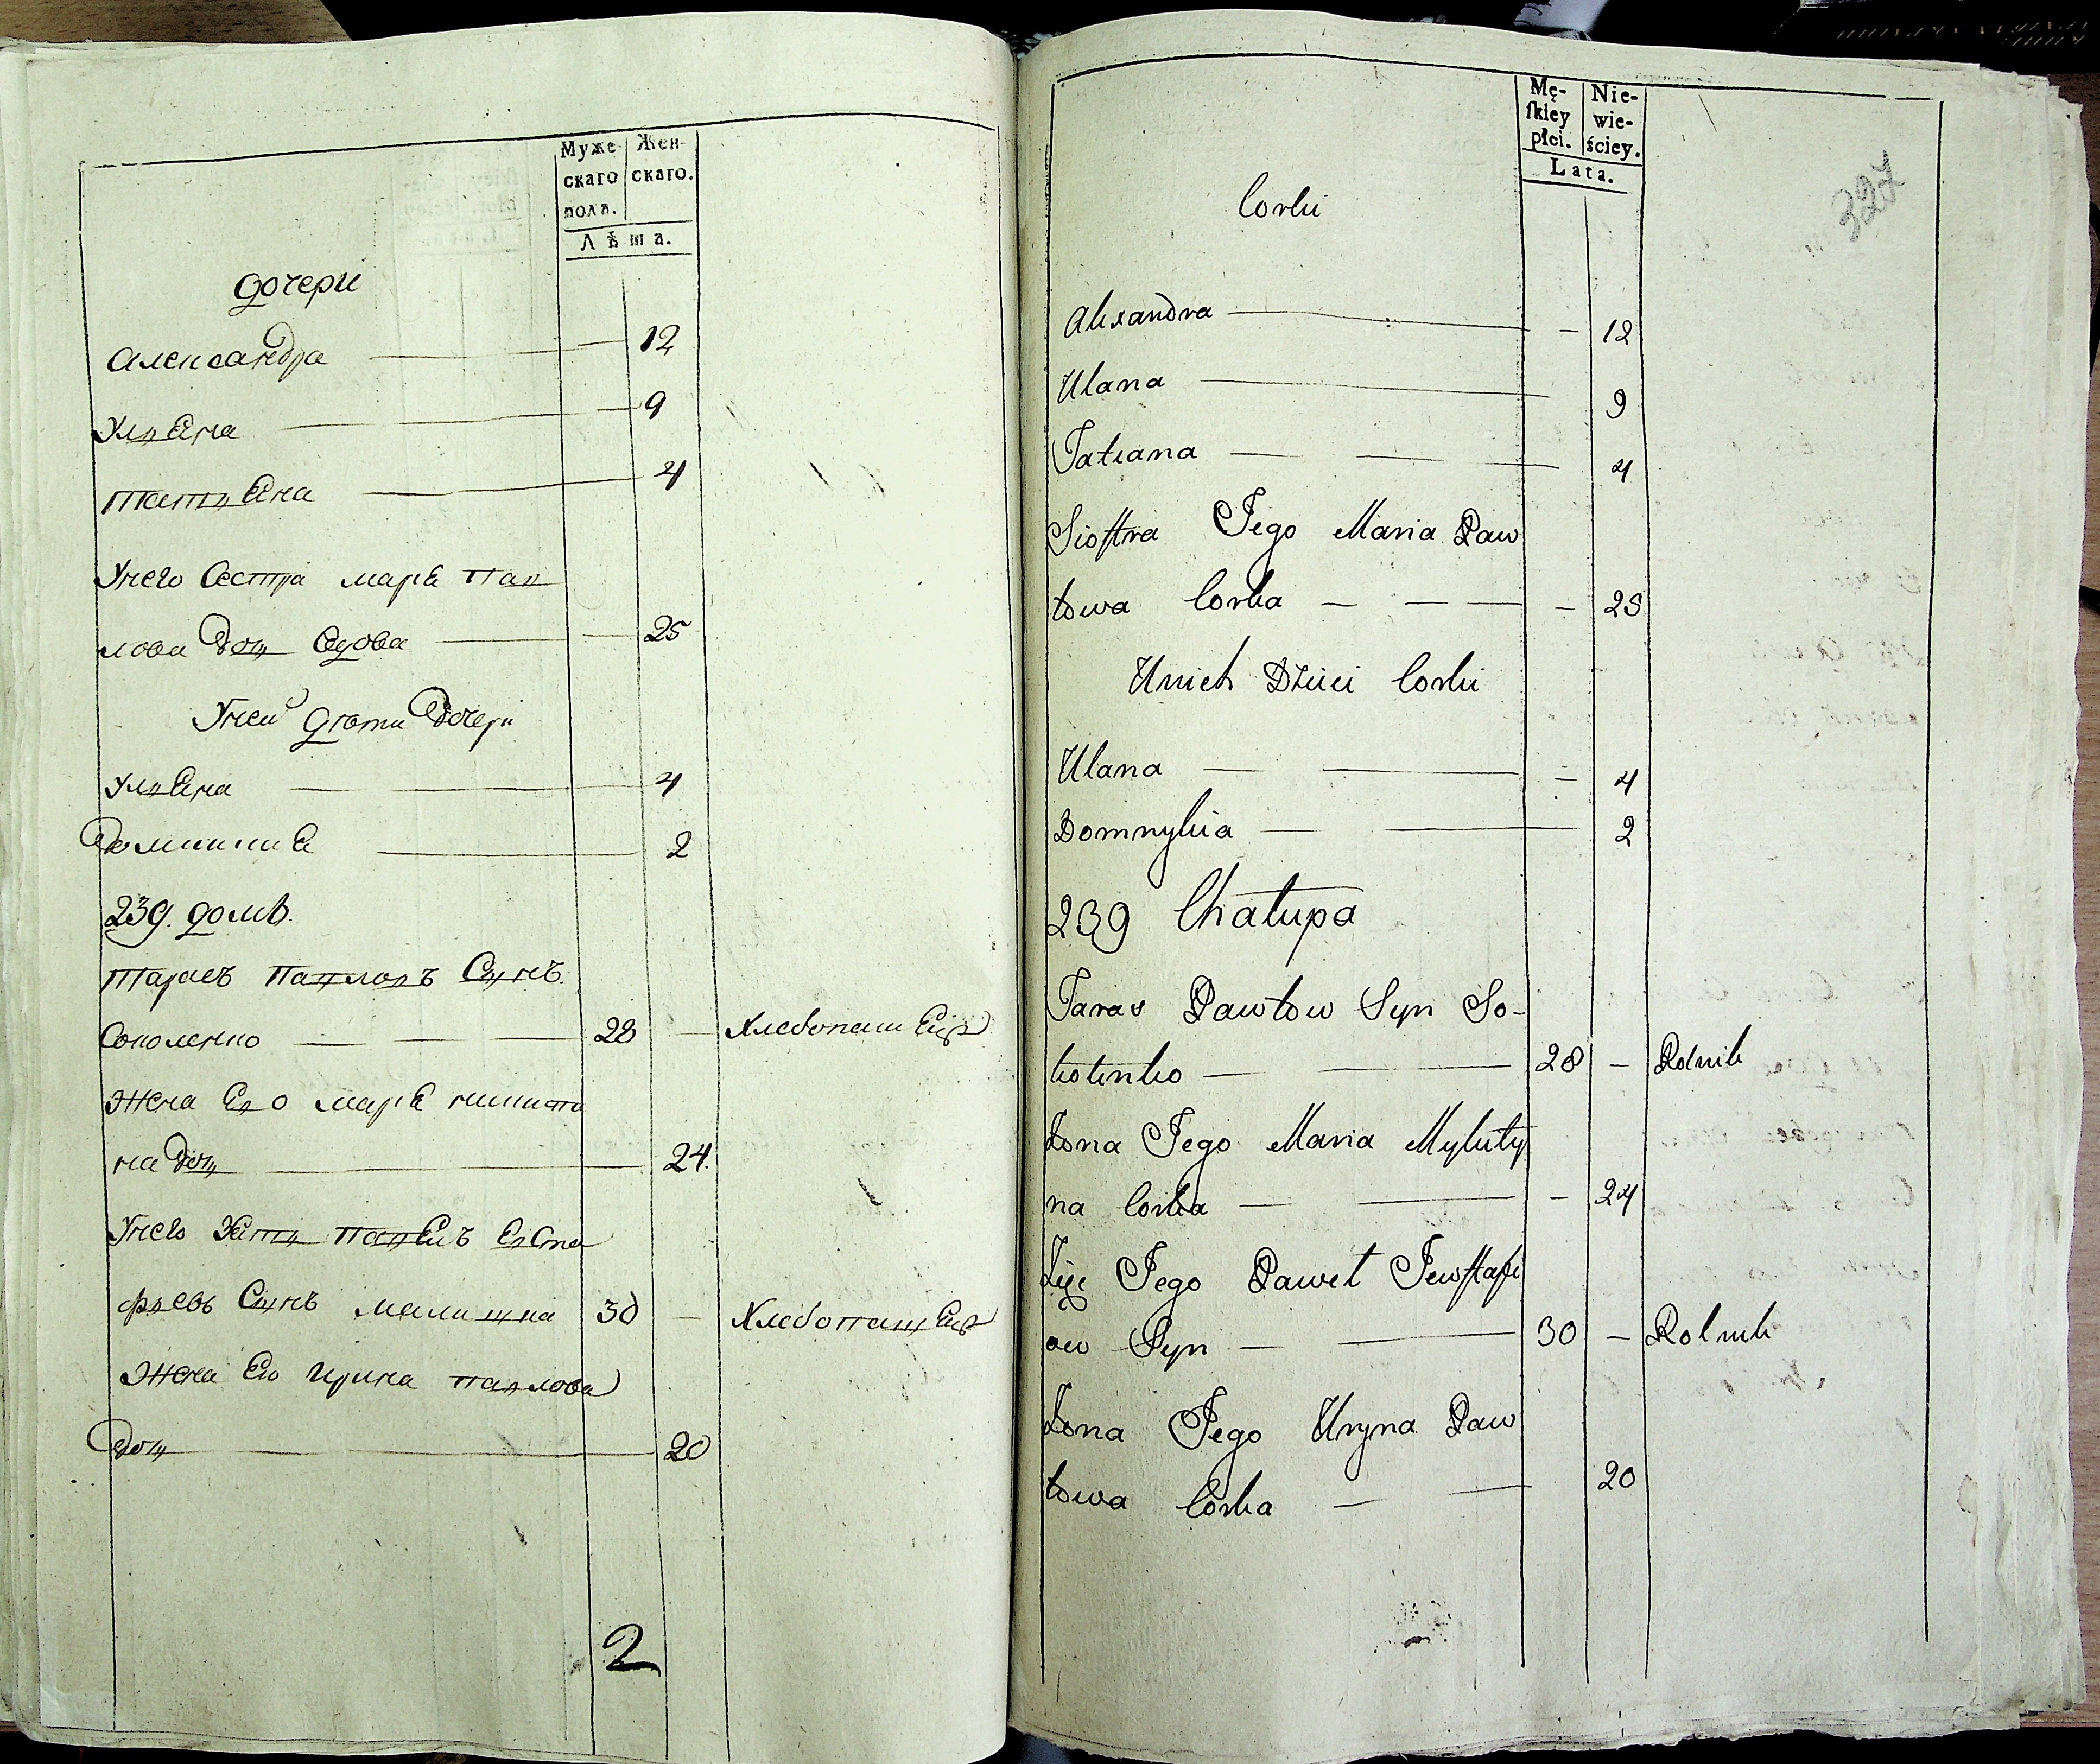 Муже-
скаго
пола.
Жен-
скаго.
Лѣта.
дочери
Александра — 12
Ульяна — 9
татьяна — 4
Унего Сестра марья пав
лова доч вдова — 25
Уней дѣти дочери
Ульяна — 4
Домникия — 2
239. домъ.
тарасъ павловъ Сынъ
Соколенко — 28 — хлебопашецъ
жена Его марья никити
на доч — 24.
Унего Зять павелъ Евста
фьевъ Сынъ 30 — хлебопашецъ
жена Его Ирина павлова
доч — 20
2
Mę-
ſkiey
płci.
Nie-
wie-
ściey.
Lata.
327
Corki
Alexandra — — 12
Ulana — 9
Tatiana — — — 4
Sioſtra Jego Maria Paw
łowa Corka — — — — 25
Unich Dzieci Corki
Ulana — — — 4
Domnykia — — 2
239 Chałupa
Taras Pawłow Syn So-
kolenko — — 28 — Rolnik
Żona Jego Maria Mykity
na Corka — — — 24
Zięć Jego Paweł Jewſtafi
ow Syn — — 30 — Rolnik
Żona Jego Uryna Paw
łowa Corka — — 20